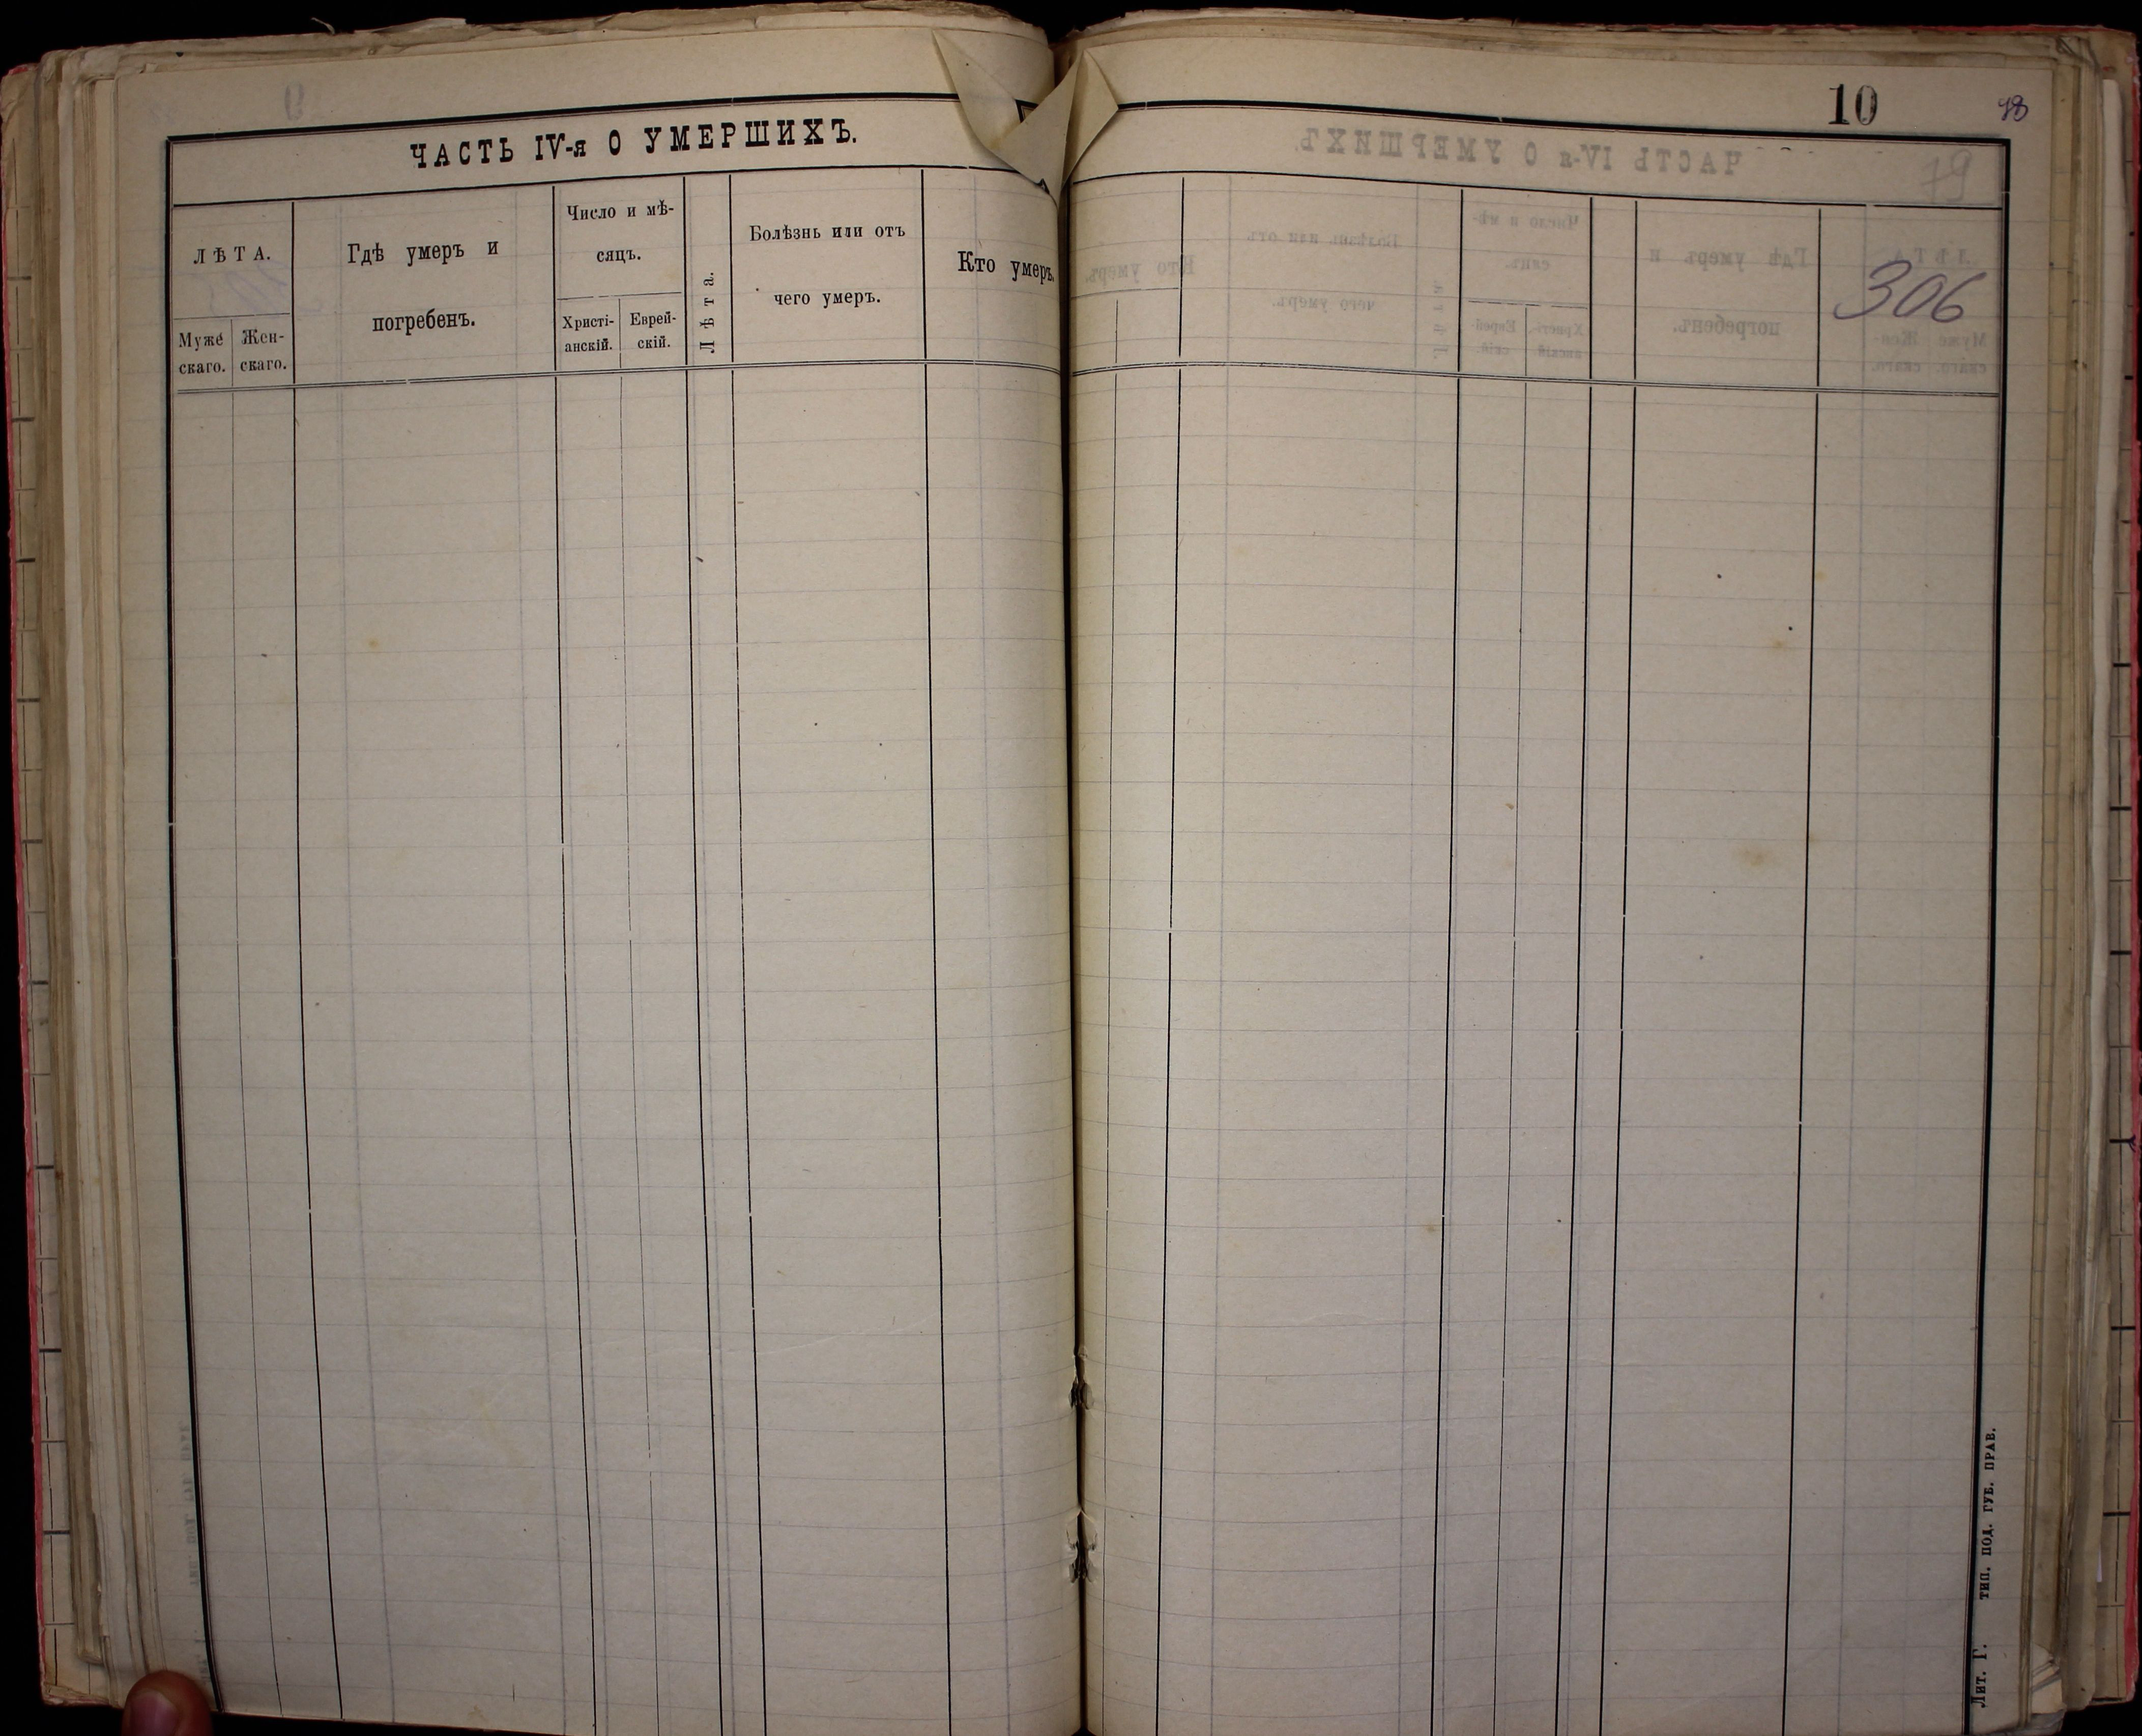 ЧАСТЬ IV-я О УМЕРШИХЪ.
ЛѢТА.
Муже
скаго.
Жен-
скаго.
Гдѣ умеръ и
погребенъ.
Число и мѣ-
сяцъ.
Христі-
анскій.
Еврей-
скій.
Лѣта.
Болѣзнь или отъ
чего умеръ.
Кто умеръ.
10
306
Лит. Г. ТИП. ПОД. ГУБ. ПРАВ.